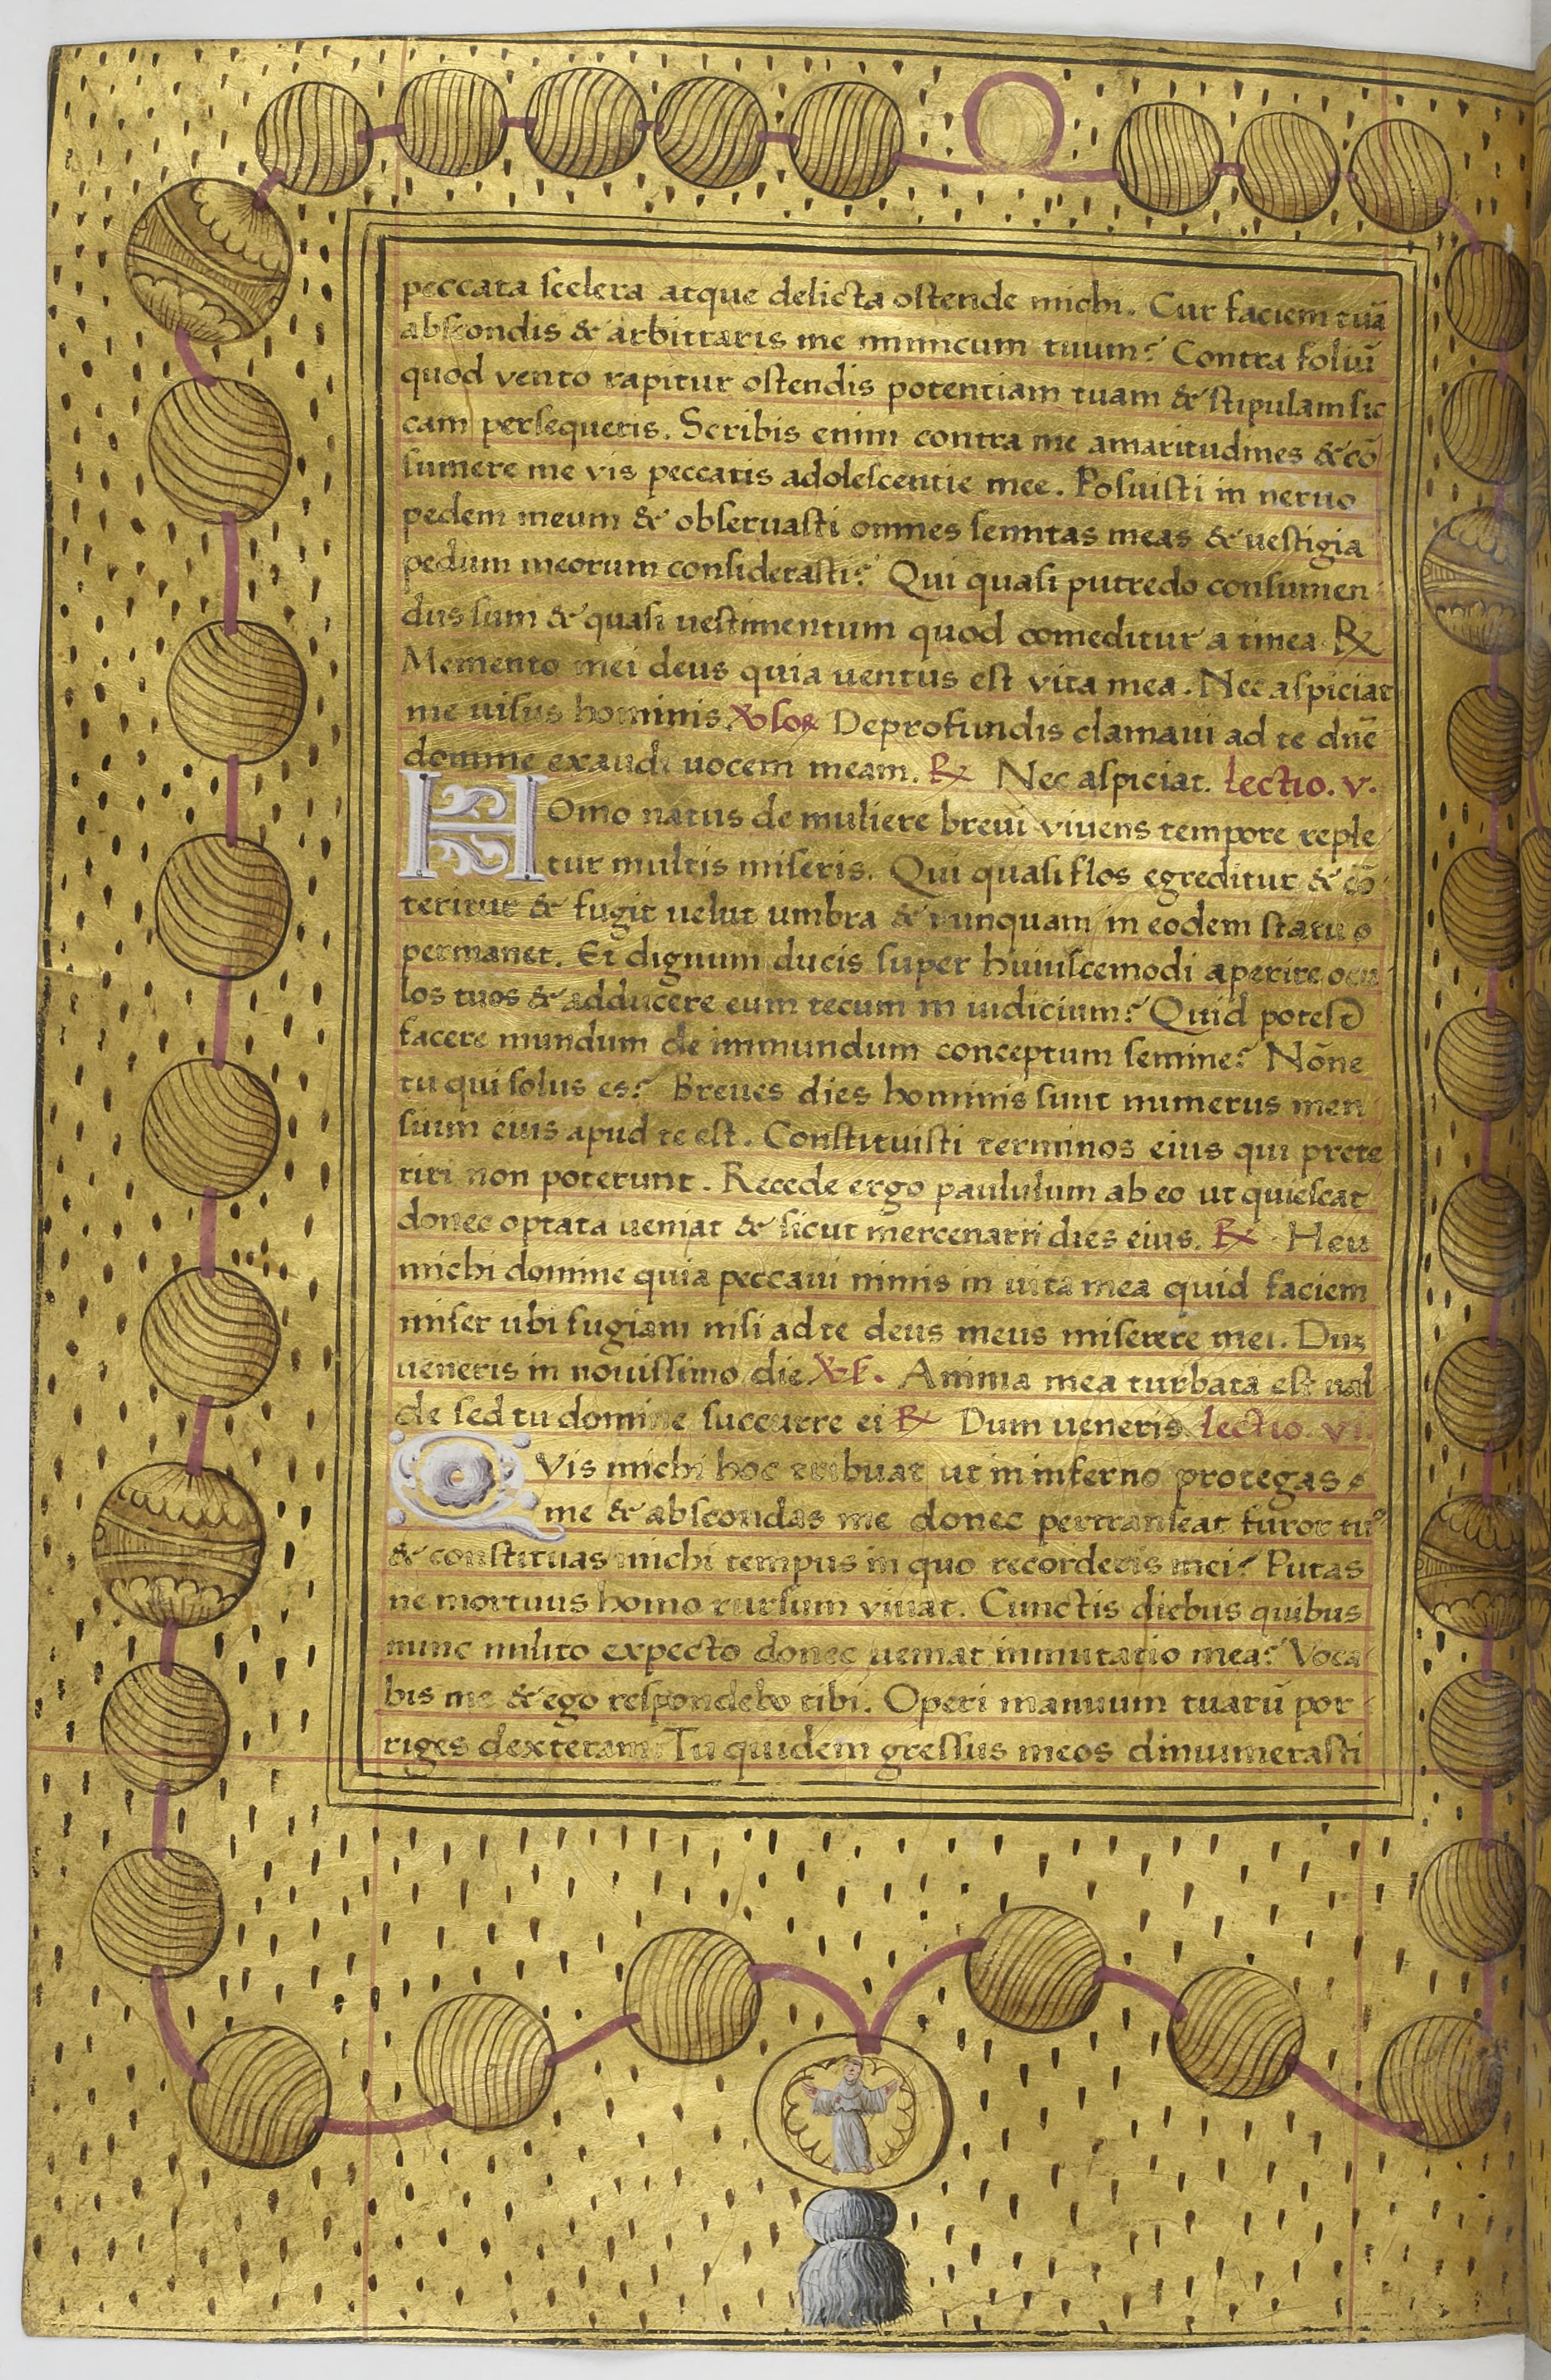 peccata scelera atque delicta ostende michi. Cur faciem tuā
abscondis & arbitraris me inimicum tuum? Contra foliū
quod vento rapitur ostendis potentiam tuam & stipulam sic
cam persequeris. Scribis enim contra me amaritudines & cō
sumere me vis peccatis adolescentie mee. Posuisti in neruo
pedem meum & obseruasti omnes semitas meas & uestigia
pedum meorum considerasti? Qui quasi putredo consumen
dus sum & quasi uestimentum quod comeditur a tinea ℞
Memento mei deus quia uentus est vita mea. Nec aspiciat
me uisus hominis. De profundis clamaui ad te dn̄e
domine exaudi uocem meam. ℞ Nec aspiciat. lectio. v.
Homo natus de muliere breui viuens tempore reple
tur multis miseris. Qui quasi flos egreditur & cō
teritur & fugit uelut umbra & nunquam in eodem statu
permanet. Et dignum ducis super huiuscemodi aperire ocu
los tuos & adducere eum tecum in iudicium? Quid potest
facere mundum de immundum conceptum semine? Nōne
tu qui solus es? Breues dies hominis sunt numerus men
sium eius apud te est. Constituisti terminos eius qui prete
riri non poterunt. Recede ergo paululum ab eo ut quiescat
donec optata ueniat & sicut mercenarii dies eius. ℞ Heu
michi domine quia peccaui nimis in uita mea quid faciem
miser ubi fugiam nisi ad te deus meus miserere mei. Dum
ueneris in nouissimo die ℣. Anima mea turbata est ual
de sed tu domine succurre ei ℞ Dum ueneris. lectio. vi.
Qvis michi hoc tribuat ut in inferno protegas
me & abscondas me donec pertranseat furor tu⁹
& constituas michi tempus in quo recorderis mei? Putas
ne mortuus homo rursum viuat. Cunctis diebus quibus
nunc milito expecto donec ueniat inmutatio mea? Voca
bis me & ego respondebo tibi. Operi manuum tuarū por
riges dexteram. Tu quidem gressus meos dinumerasti